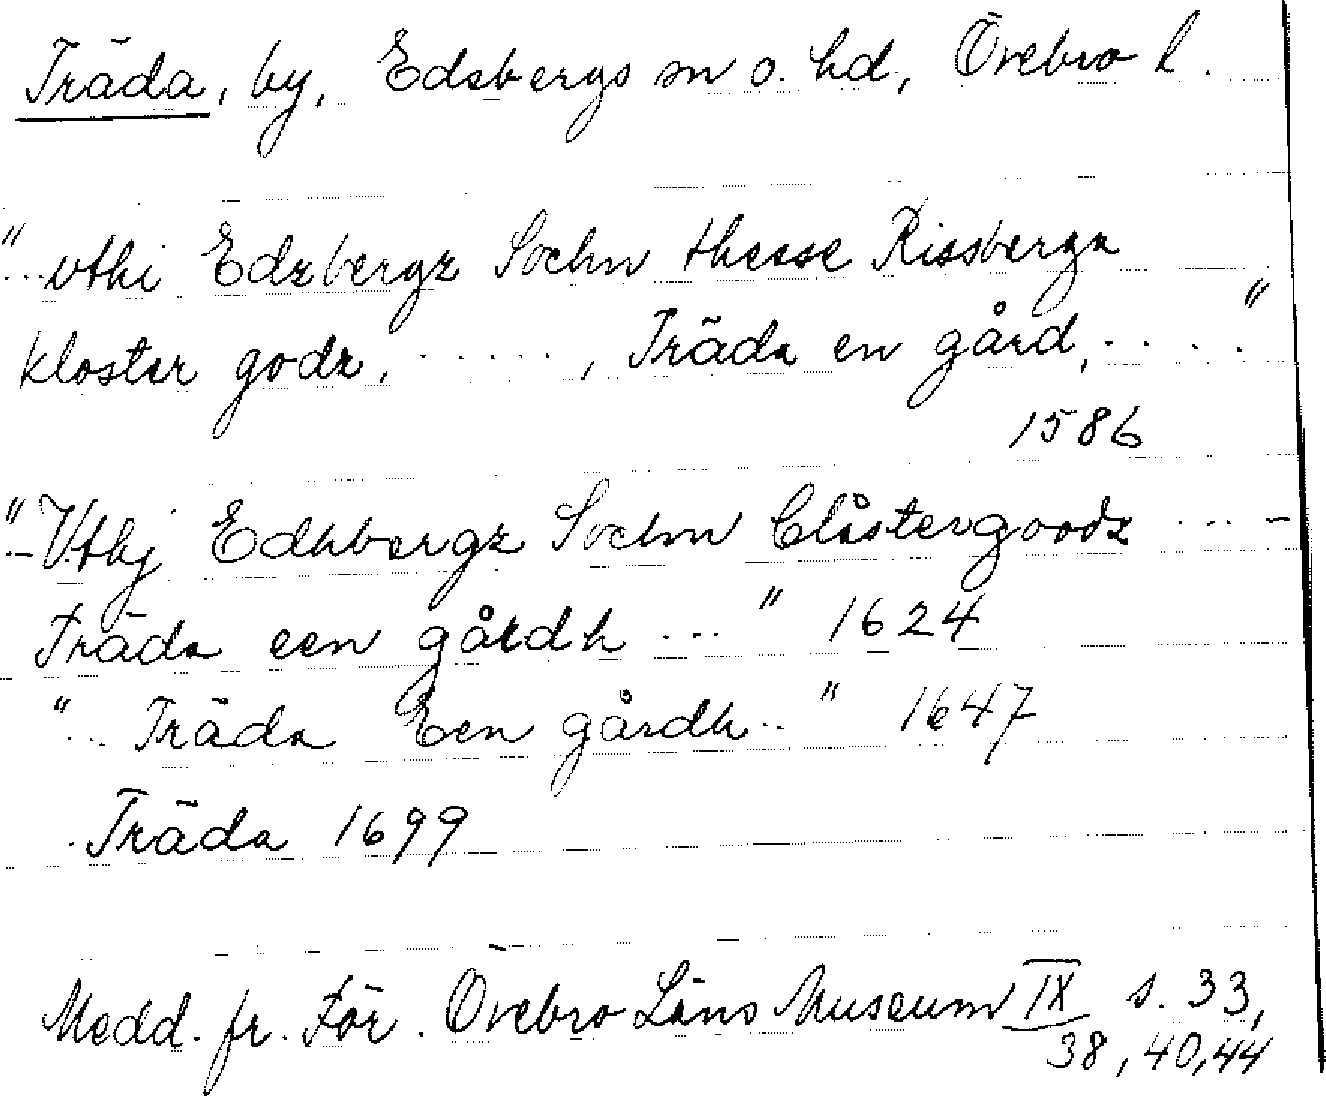 Träda, by, Edsbergs sn o. hd, Örebro l.
"...vthi Edzbergz Sochn thesse Rissberga
kloster godz, ....., Träda en gård, ...."
1586
"-Vthj Edhbergz Sochn Clåstergoodz ...-
Träda een gårdh ..." 1624
".. Träda Een gårdh.." 1647
Träda 1699
Medd. fr. För. Örebro Läns Museum IX s. 33,
38, 40, 44